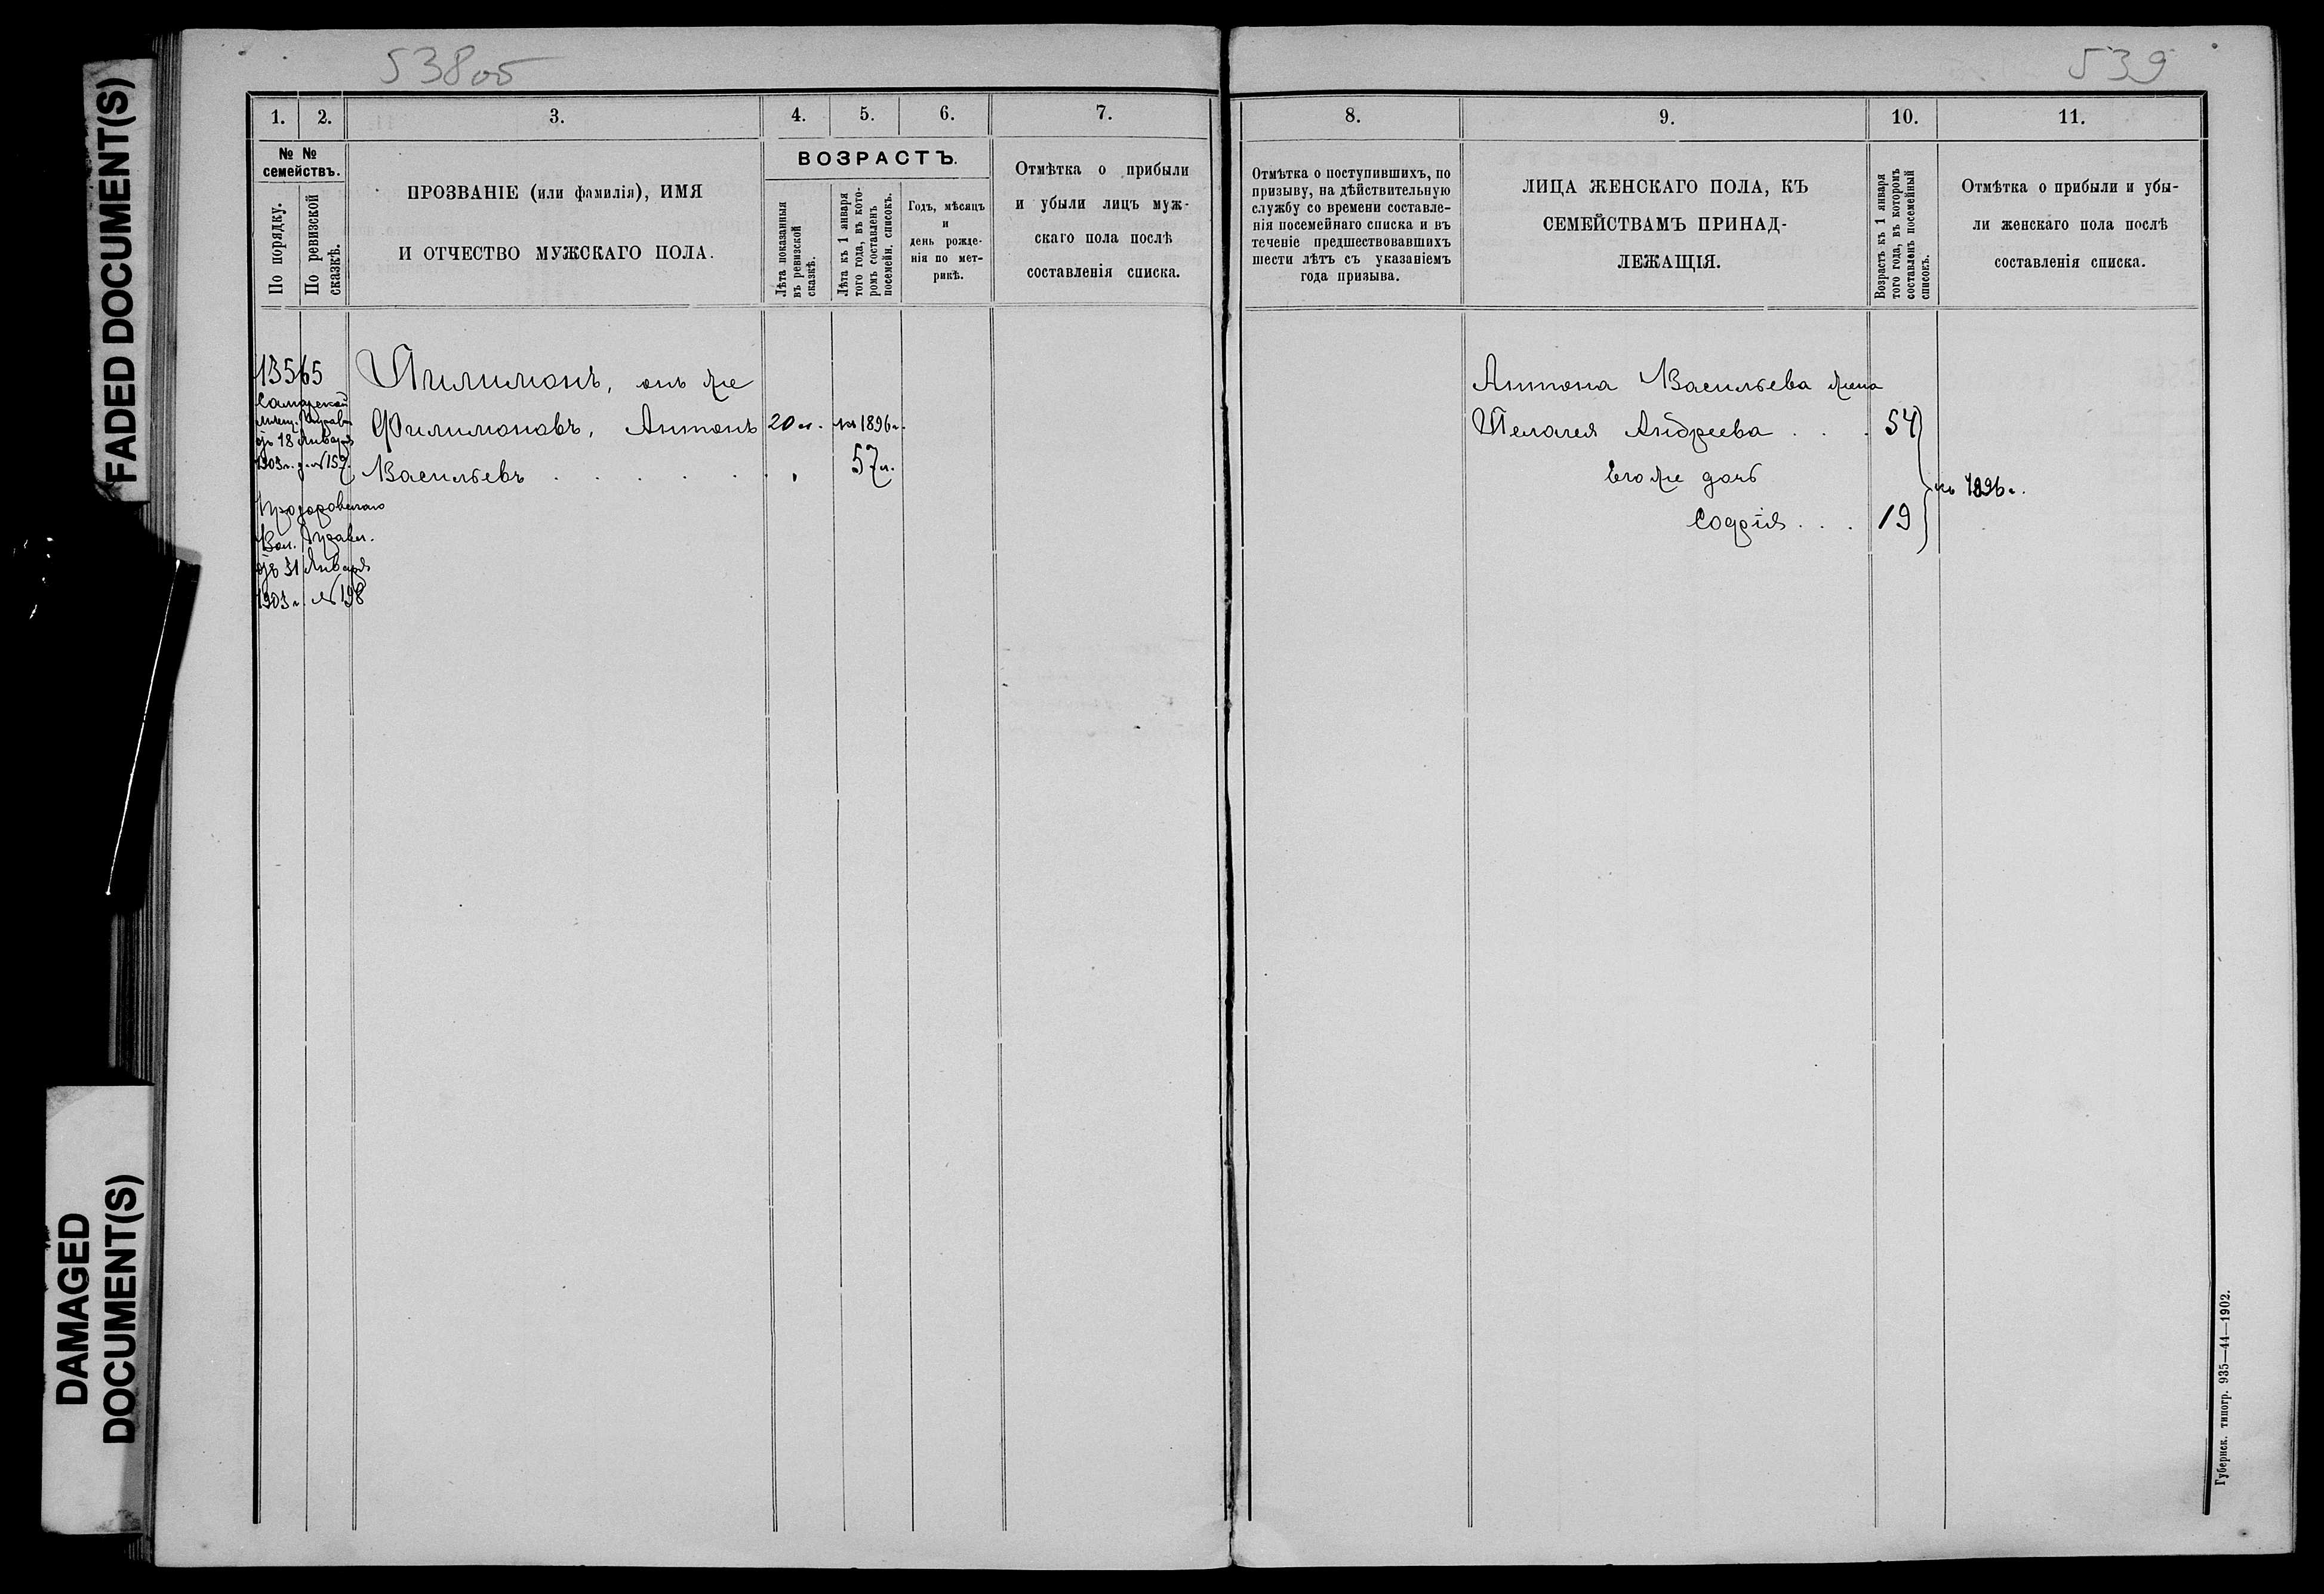 FADED DOCUMENT(S)
DAMAGED
DOCUMENT(S)
538об
1. 2. 3. 4. 5. 6. 7.
№ №
семействъ.
По порядку.
По ревизской
сказкѣ.
ПРОЗВАНІЕ (или фамилія), ИМЯ
И ОТЧЕСТВО МУЖСКАГО ПОЛА.
ВОЗРАСТЪ.
Лѣта показанныя
въ ревизской
сказкѣ.
Лѣта къ 1 января
того года, въ кото-
ромъ составленъ
посемейн. списокъ.
Годъ, мѣсяцъ
и
день рожде-
нія по мет-
рикѣ.
Отмѣтка о прибыли
и убыли лицъ муж-
скаго пола послѣ
составленія списка.
13565
Самарской
мѣщ. Управы
отъ 18 Января
1903 г. з. № 159.
Прозоровскаго
Вол. Правл.
отъ 31 Января
1903 г. № 198
Пилимонъ, онъ же
Филимоновъ, Антонъ 20 л. на 1896 г.
Васильевъ . . . . . . 57 л.
539
8. 9. 10. 11.
Отмѣтка о поступившихъ, по
призыву, на дѣйствительную
службу со времени составле-
нія посемейнаго списка и въ
теченіе предшествовавшихъ
шести лѣтъ съ указаніемъ
года призыва.
ЛИЦА ЖЕНСКАГО ПОЛА, КЪ
СЕМЕЙСТВАМЪ ПРИНАД-
ЛЕЖАЩІЯ.
Возрастъ къ 1 января
того года, въ которомъ
составленъ посемейный
списокъ.
Отмѣтка о прибыли и убы-
ли женскаго пола послѣ
составленія списка.
Антона Васильева жена
Пелагея Андреева . . . 54
Его же дочь
къ 1896 г.
Софія . . . 19
Губернск. типогр. 935—44—1902.